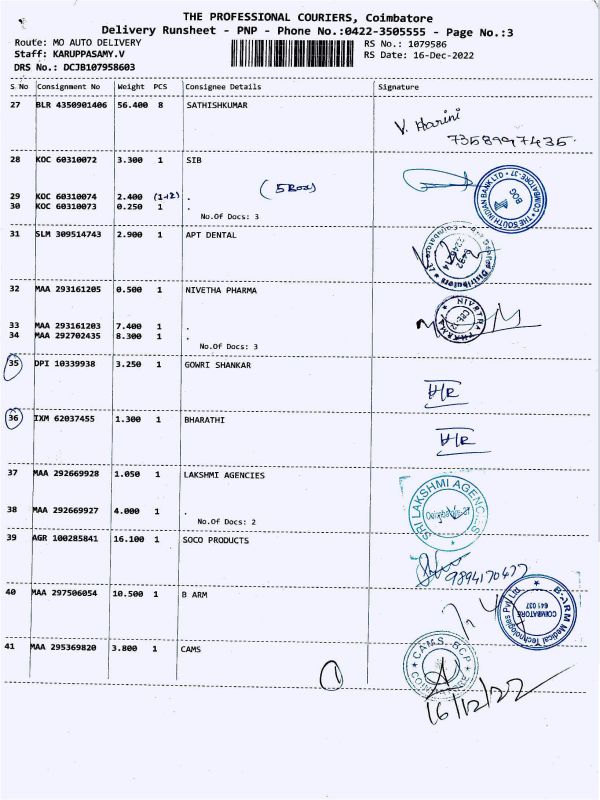 THE PROFESSIONAL COURIERS, Coimbatore
Delivery Runsheet - PNP - Phone No.:0422-3505555 - Page No.:3
Route: MO AUTO DELIVERY
RS No.: 1079586
Staff: KARUPPASAMY.V
RS Date: 16-Dec-2022
DRS No.: DCJB107958603
S No Consignment No Weight PCS Consignee Details Signature
27 BLR 4350901406 56.400 8 SATHISHKUMAR
V. Harini
7358997435
28 KOC 60310072 3.300 1 SIB
THE SOUTH INDIAN BANK LTD * COIMBATORE-37 * BOG
29 KOC 60310074 2.400 (1+2) .
30 KOC 60310073 0.250 1 .
No.Of Docs: 3
31 SLM 309514743 2.900 1 APT DENTAL
Distributors
32 MAA 293161205 0.500 1 NIVETHA PHARMA
33 MAA 293161203 7.400 1 .
34 MAA 292702435 8.300 1 .
No.Of Docs: 3
NIVETHA PHARMA
35 DPI 10339938 3.250 1 GOWRI SHANKAR
36 IXM 62037455 1.300 1 BHARATHI
37 MAA 292669928 1.050 1 LAKSHMI AGENCIES
38 MAA 292669927 4.000 1 .
No.Of Docs: 2
SRI LAKSHMI AGENCIES
Coimbatore-37
39 AGR 100285841 16.100 1 SOCO PRODUCTS
9894170477
40 MAA 297506054 10.500 1 B ARM
B-ARM Medical Technologies Pvt Ltd
COIMBATORE
641 037
41 MAA 295369820 3.800 1 CAMS
CAMS-BCP
16/12/22